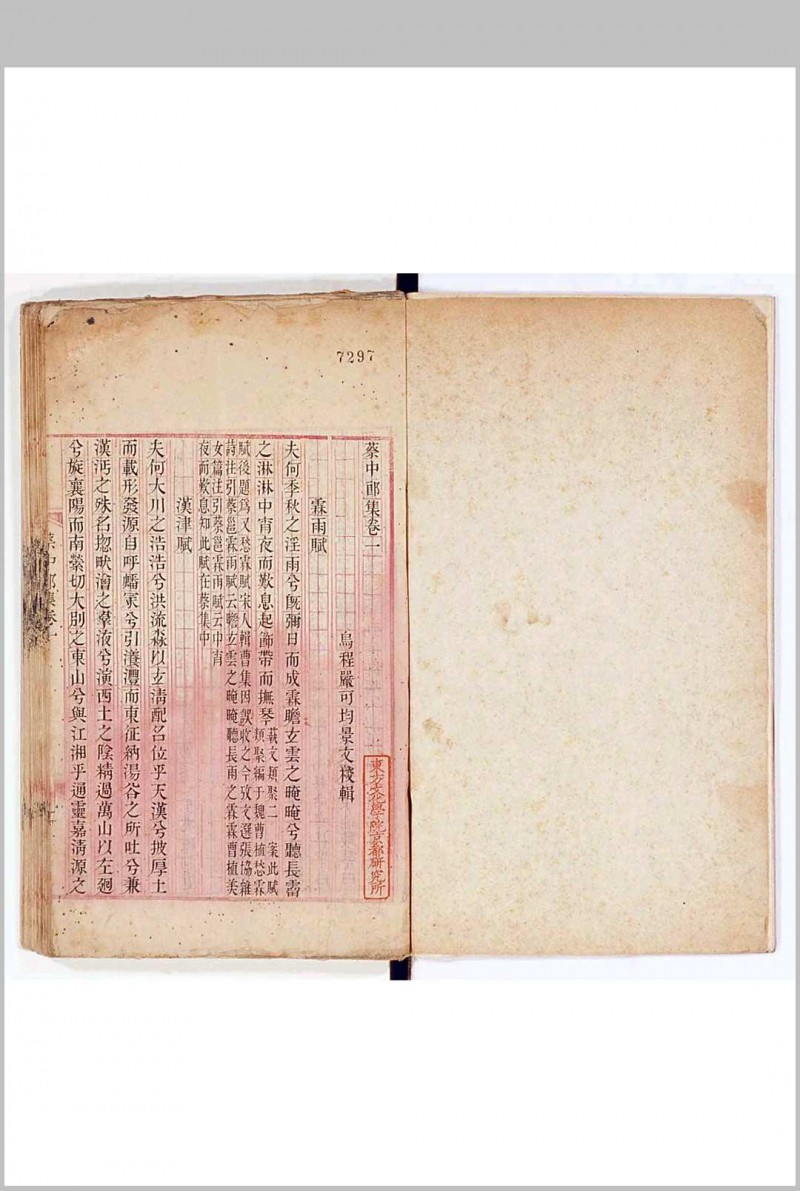 7297
蔡中郎集卷一
烏程嚴可均景文校輯
東方文化學院京都研究所
霖雨賦
夫何季秋之淫雨兮旣彌日而成霖瞻玄雲之晻晻兮聽長霤
之淋淋中宵夜而歎息起飾帶而撫琴蓺文類聚二 案此賦
類聚編于魏曹植愁霖
賦後題爲又愁霖賦宋人輯曹集因誤收之今攷文選張協雜
詩注引蔡邕霖雨賦云瞻玄雲之晻晻聽長雨之霖霖曹植美
女篇注引蔡邕霖雨賦云中宵
夜而歎息知此賦在蔡集中
漢津賦
夫何大川之浩浩兮洪流淼以玄淸配名位乎天漢兮披厚土
而載形發源自乎嶓冢兮引瀁灃而東征納湯谷之所吐兮兼
漢沔之殊名揔畎澮之羣液兮演西土之陰精過萬山以左迴
兮旋襄陽而南縈切大別之東山兮與江湘乎通靈嘉淸源之
蔡中郎集卷一